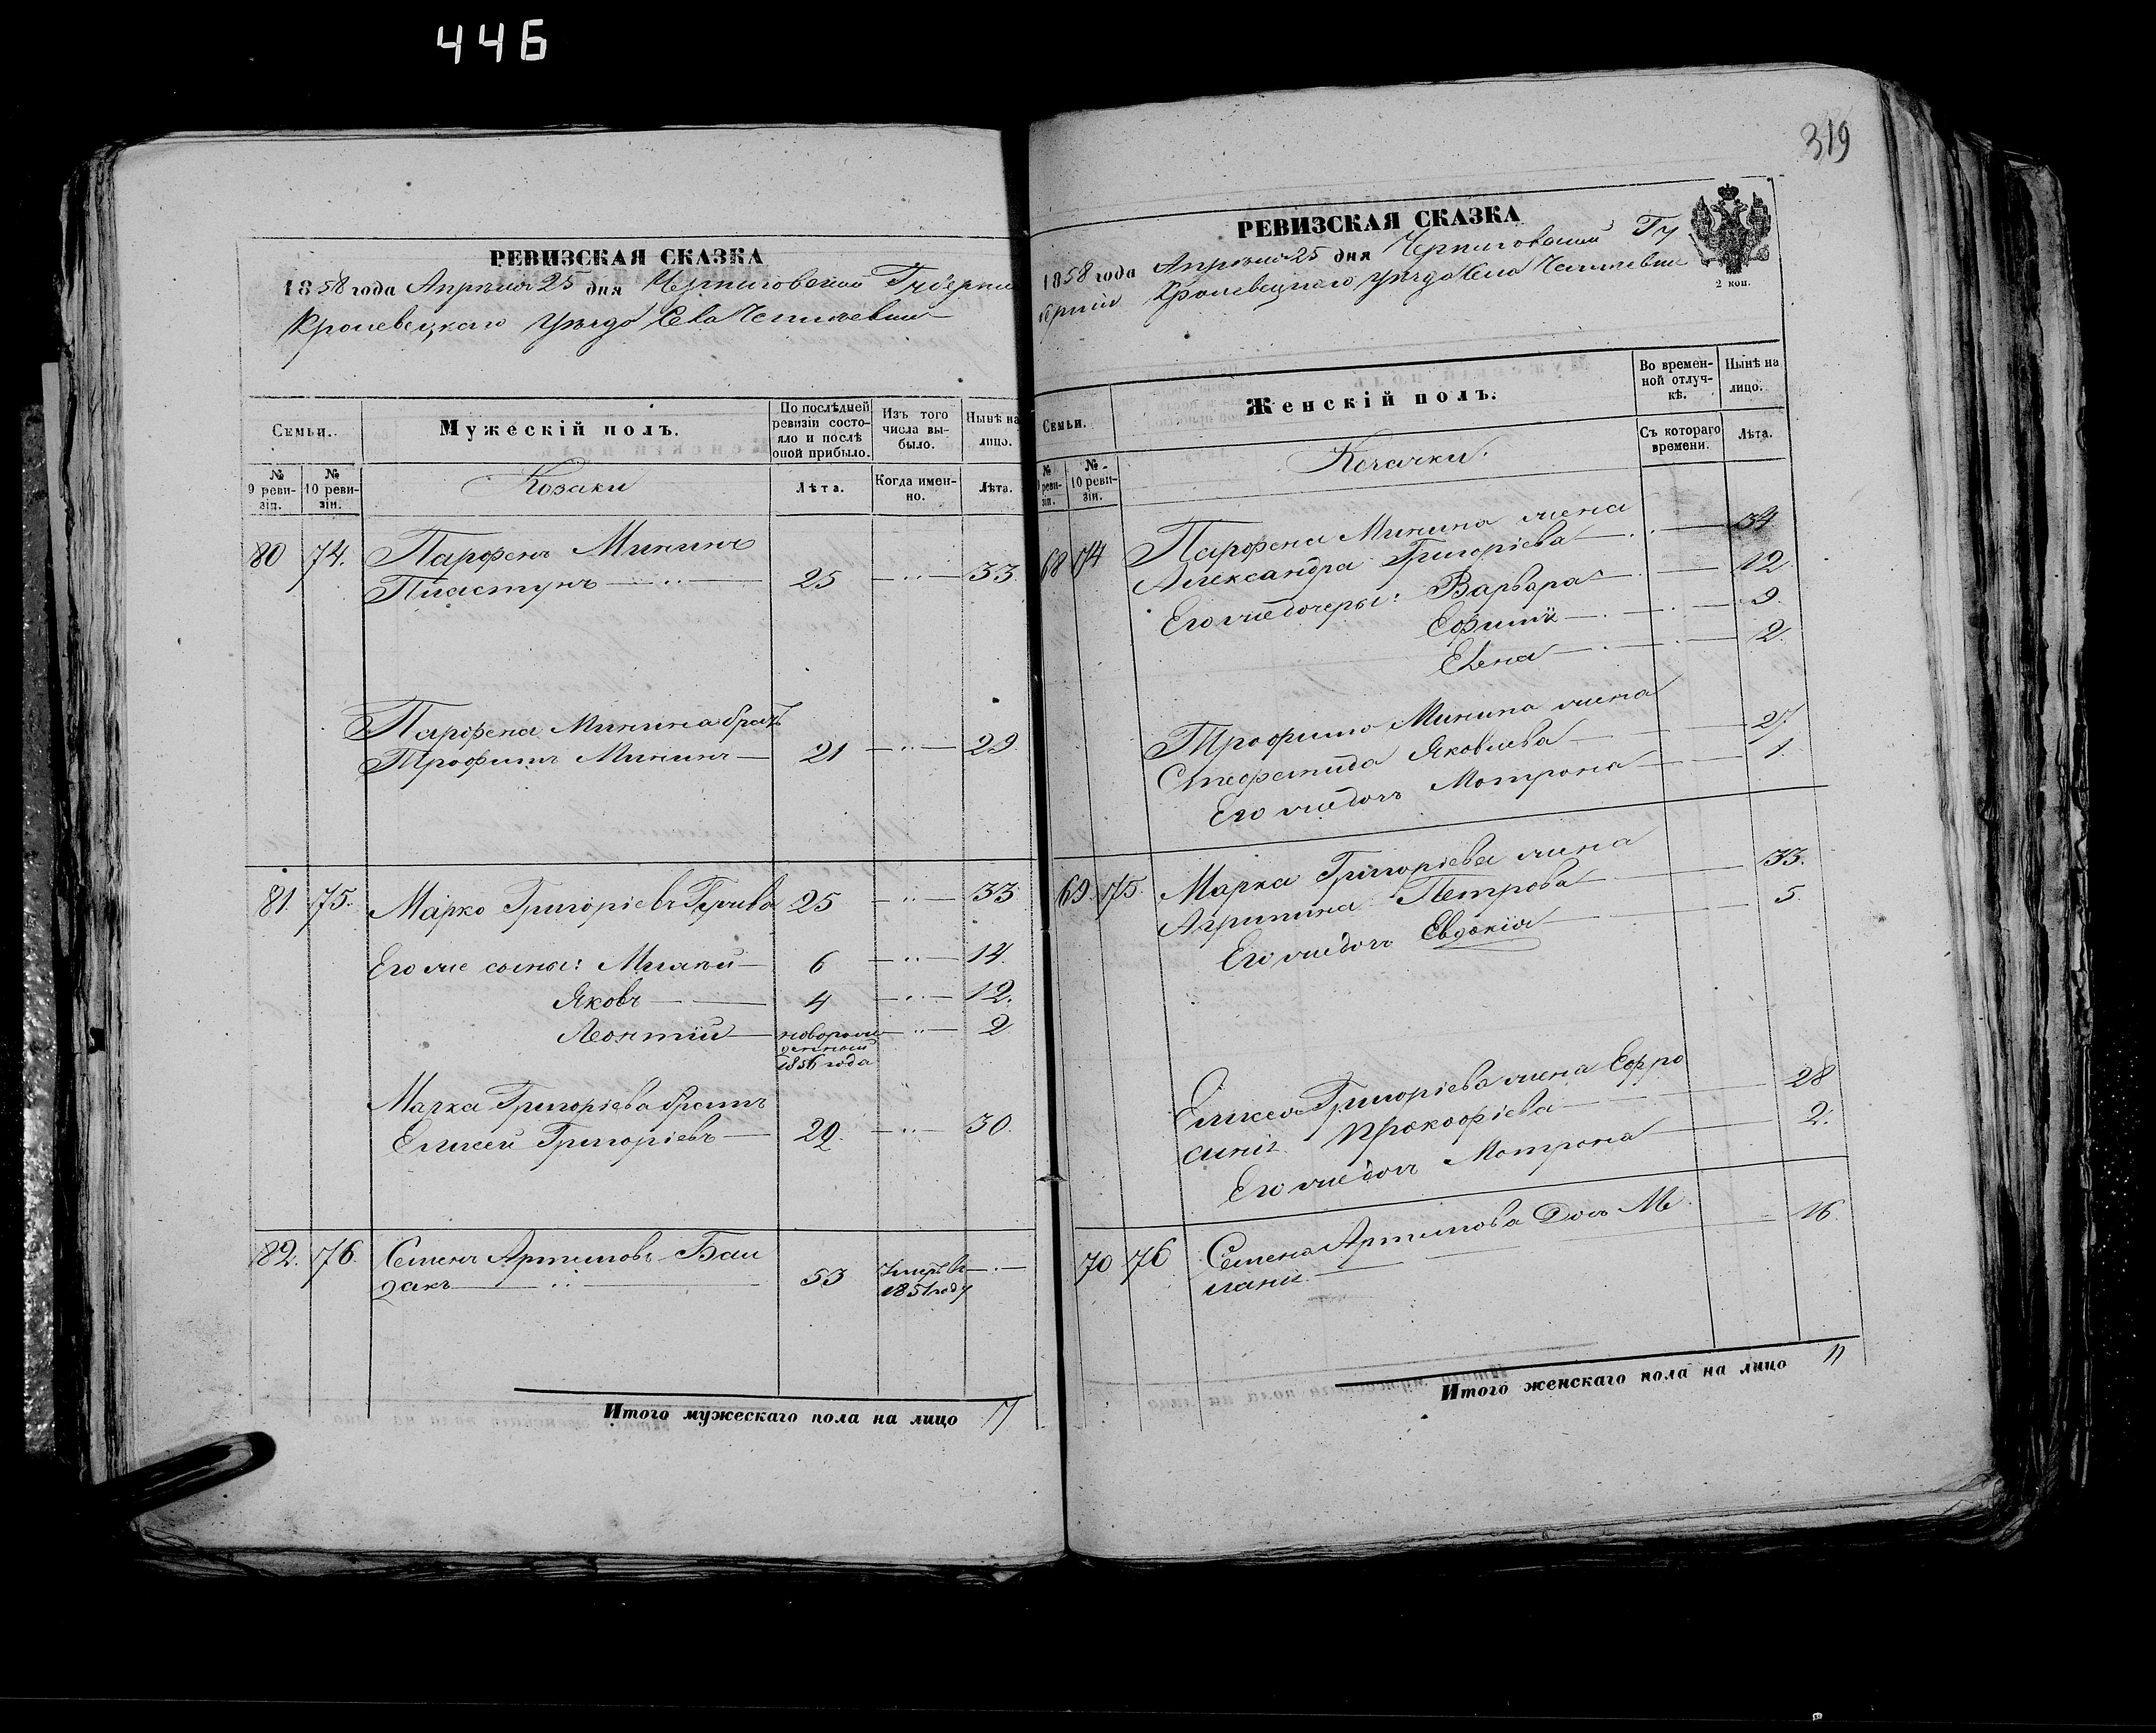 446
РЕВИЗСКАЯ СКАЗКА
1858 года Апреля 25 дня Черниговской Губерни
Кролевецкаго уезда Села
Семьи.
Мужескій полъ.
По послѣдней ревизіи состояло и послѣ оной прибыло.
Изъ того числа выбыло.
Нынѣ на лицо.
№ 9 ревизіи.
№ 10 ревизіи.
Козаки
Лѣта.
Когда именно.
Лѣта.
80 74. Парфенъ Мининъ
Пластунъ 25 33.
Парфена Минина братъ
Трофимъ Мининъ 21 29
81. 75. Марко Григоріевъ 25 33
Его же сыны: 6 14.
Яковъ 4 12.
Леонтій новорожденный 2
1856 года
Марка Григоріева братъ
Елисей Григоріевъ 22. 30.
82. 76. Семенъ Артимовъ Бай
дакъ 53 Умеръ въ
1851 году
Итого мужескаго пола на лицо 7
319
РЕВИЗСКАЯ СКАЗКА
1858 года Апреля 25 дня Черниговской Гу
берніи Кролевецкаго уезда Села
2 коп.
Семьи.
Женскій полъ.
Во временной отлучкѣ.
Нынѣ на лицо.
№ 9 ревизіи.
№ 10 ревизіи.
Козачки.
Съ котораго времени.
Лѣта.
68 74 Парфена Минина жена
Александра Григоріева 34
Его же дочери: Варвара 12
Ефимія 9.
Елена 2.
Трофима Минина жена
Яковлева 27.
Его же дочь Мотрона 1.
69. 75. Марка Григоріева жена
Агрипина Петрова 33.
Его же дочь Евдокія 5.
Елисея Григоріева жена Ефро
синія Прокофіева 28
Его же дочь Мотрона 2.
70 76 Семена Артимова Дочь Ме
ланія 16.
Итого женскаго пола на лицо 11